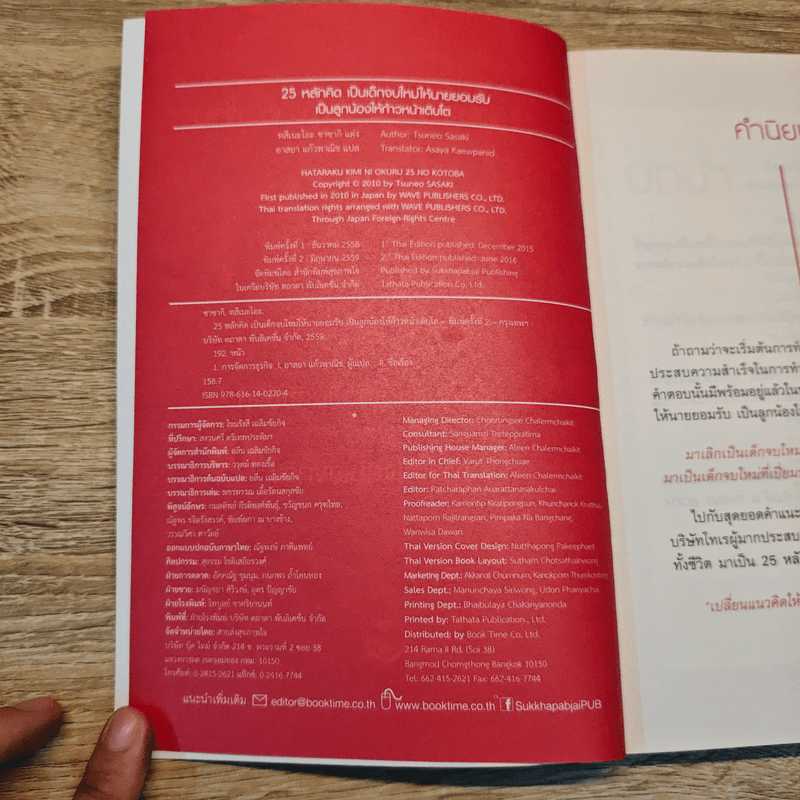 25 หลักคิด เป็นเด็กจบใหม่ให้นายยอมรับ
เป็นลูกน้องให้ก้าวหน้าเติบโต
ทสึเนะโอะ ซาซากิ แต่ง Author: Tsuneo Sasaki
อาสยา แก้วพาณิช แปล Translator: Asaya Kaewpanid
HATARAKU KIMI NI OKURU 25 NO KOTOBA
Copyright © 2010 by Tsuneo SASAKI
First published in 2010 in Japan by WAVE PUBLISHERS CO., LTD.
Thai translation rights arranged with WAVE PUBLISHERS CO., LTD.
Through Japan Foreign-Rights Centre
พิมพ์ครั้งที่ 1 : ธันวาคม 2558 1st Thai Edition published: December 2015
พิมพ์ครั้งที่ 2 : มิถุนายน 2559 2nd Thai Edition published: June 2016
จัดพิมพ์โดย สำนักพิมพ์สุขภาพใจ Published by Sukkhapabjai Publishing
ในเครือบริษัท ตถาตา พับลิเคชั่น จำกัด Tathata Publication Co. Ltd.
ซาซากิ, ทสึเนะโอะ.
25 หลักคิด เป็นเด็กจบใหม่ให้นายยอมรับ เป็นลูกน้องให้ก้าวหน้าเติบโต.-- พิมพ์ครั้งที่ 2.-- กรุงเทพฯ :
บริษัท ตถาตา พับลิเคชั่น จำกัด, 2559.
192. หน้า
1. การจัดการธุรกิจ I. อาสยา แก้วพาณิช, ผู้แปล. II. ชื่อเรื่อง.
158.7
ISBN 978-616-14-0220-4
กรรมการผู้จัดการ: โชนรังสี เฉลิมชัยกิจ Managing Director: Chonrungsee Chalermchaikit
ที่ปรึกษา: สงวนศรี ตรีเทพประติมา Consultant: Sanguansri Treteppratima
ผู้จัดการสำนักพิมพ์: อลีน เฉลิมชัยกิจ Publishing House Manager: Aleen Chalermchaikit
บรรณาธิการบริหาร: วรุตม์ ทองเชื้อ Editor in Chief: Varut Thongchuae
บรรณาธิการต้นฉบับแปล: อลีน เฉลิมชัยกิจ Editor for Thai Translation: Aleen Chalermchaikit
บรรณาธิการเล่ม: พชรพรรณ เอื้อรัตนสกุลชัย Editor: Patcharaphan Auarattanasakulchai
พิสูจน์อักษร: กมลทิพย์ กีรติพงศ์พันธุ์, ขวัญชนก ครุฑไทย, Proofreader: Kamontip Kiratipongpun, Khunchanok Kruttha,
ณัฐพร รจิตรังสรรค์, พิมพ์ผกา ณ บางช้าง, Nattaporn Rajitrangsan, Pimpaka Na Bangchang,
วรรณวิศา ดาวัลย์ Wanwisa Dawan
ออกแบบปกฉบับภาษาไทย: ณัฐพงษ์ ภาคีแพทย์ Thai Version Cover Design: Nutthapong Pakeephaet
ศิลปกรรม: สุธรรม โชติเสถียรวงศ์ Thai Version Book Layout: Sutham Chotsathainwong
ฝ่ายการตลาด: อัคคณัฐ ชุมนุม, กนกพร ถ้ำโคนทอง Marketing Dept.: Akkanat Chumnum, Kanokporn Thumkontong
ฝ่ายขาย: มนัญชยา ศิริวงษ์, อุดร ปัญญาชัย Sales Dept.: Manunchaya Siriwong, Udon Phanyachai
ฝ่ายโรงพิมพ์: ไพบูลย์ ชาคริยานนท์ Printing Dept.: Bhaibulaya Chakariyanonda
พิมพ์ที่: ฝ่ายโรงพิมพ์ บริษัท ตถาตา พับลิเคชั่น จำกัด Printed by: Tathata Publication., Ltd.
จัดจำหน่ายโดย: สายส่งสุขภาพใจ Distributed by: Book Time Co. Ltd.
บริษัท บุ๊ค ไทม์ จำกัด 214 ซ. พระรามที่ 2 ซอย 38 214 Rama II Rd. (Soi 38)
แขวงบางมด เขตจอมทอง กทม. 10150 Bangmod Chomgthong Bangkok 10150
โทรศัพท์: 0-2415-2621 แฟกซ์: 0-2416-7744 Tel: 662-415-2621 Fax: 662-416-7744
แนะนำเพิ่มเติม editor@booktime.co.th www.booktime.co.th SukkhapabjaiPUB
คำนิย
ถ้าถามว่าจะเริ่มต้นการทำ
ประสบความสำเร็จในการทำ
คำตอบนั้นมีพร้อมอยู่แล้วใน
ให้นายยอมรับ เป็นลูกน้องใ
มาเลิกเป็นเด็กจบใหม่
มาเป็นเด็กจบใหม่ที่เปี่ยม
ไปกับสุดยอดคำแนะ
บริษัทโทเรผู้มากประสบ
ทั้งชีวิต มาเป็น 25 หลั
"เปลี่ยนแนวคิดให้